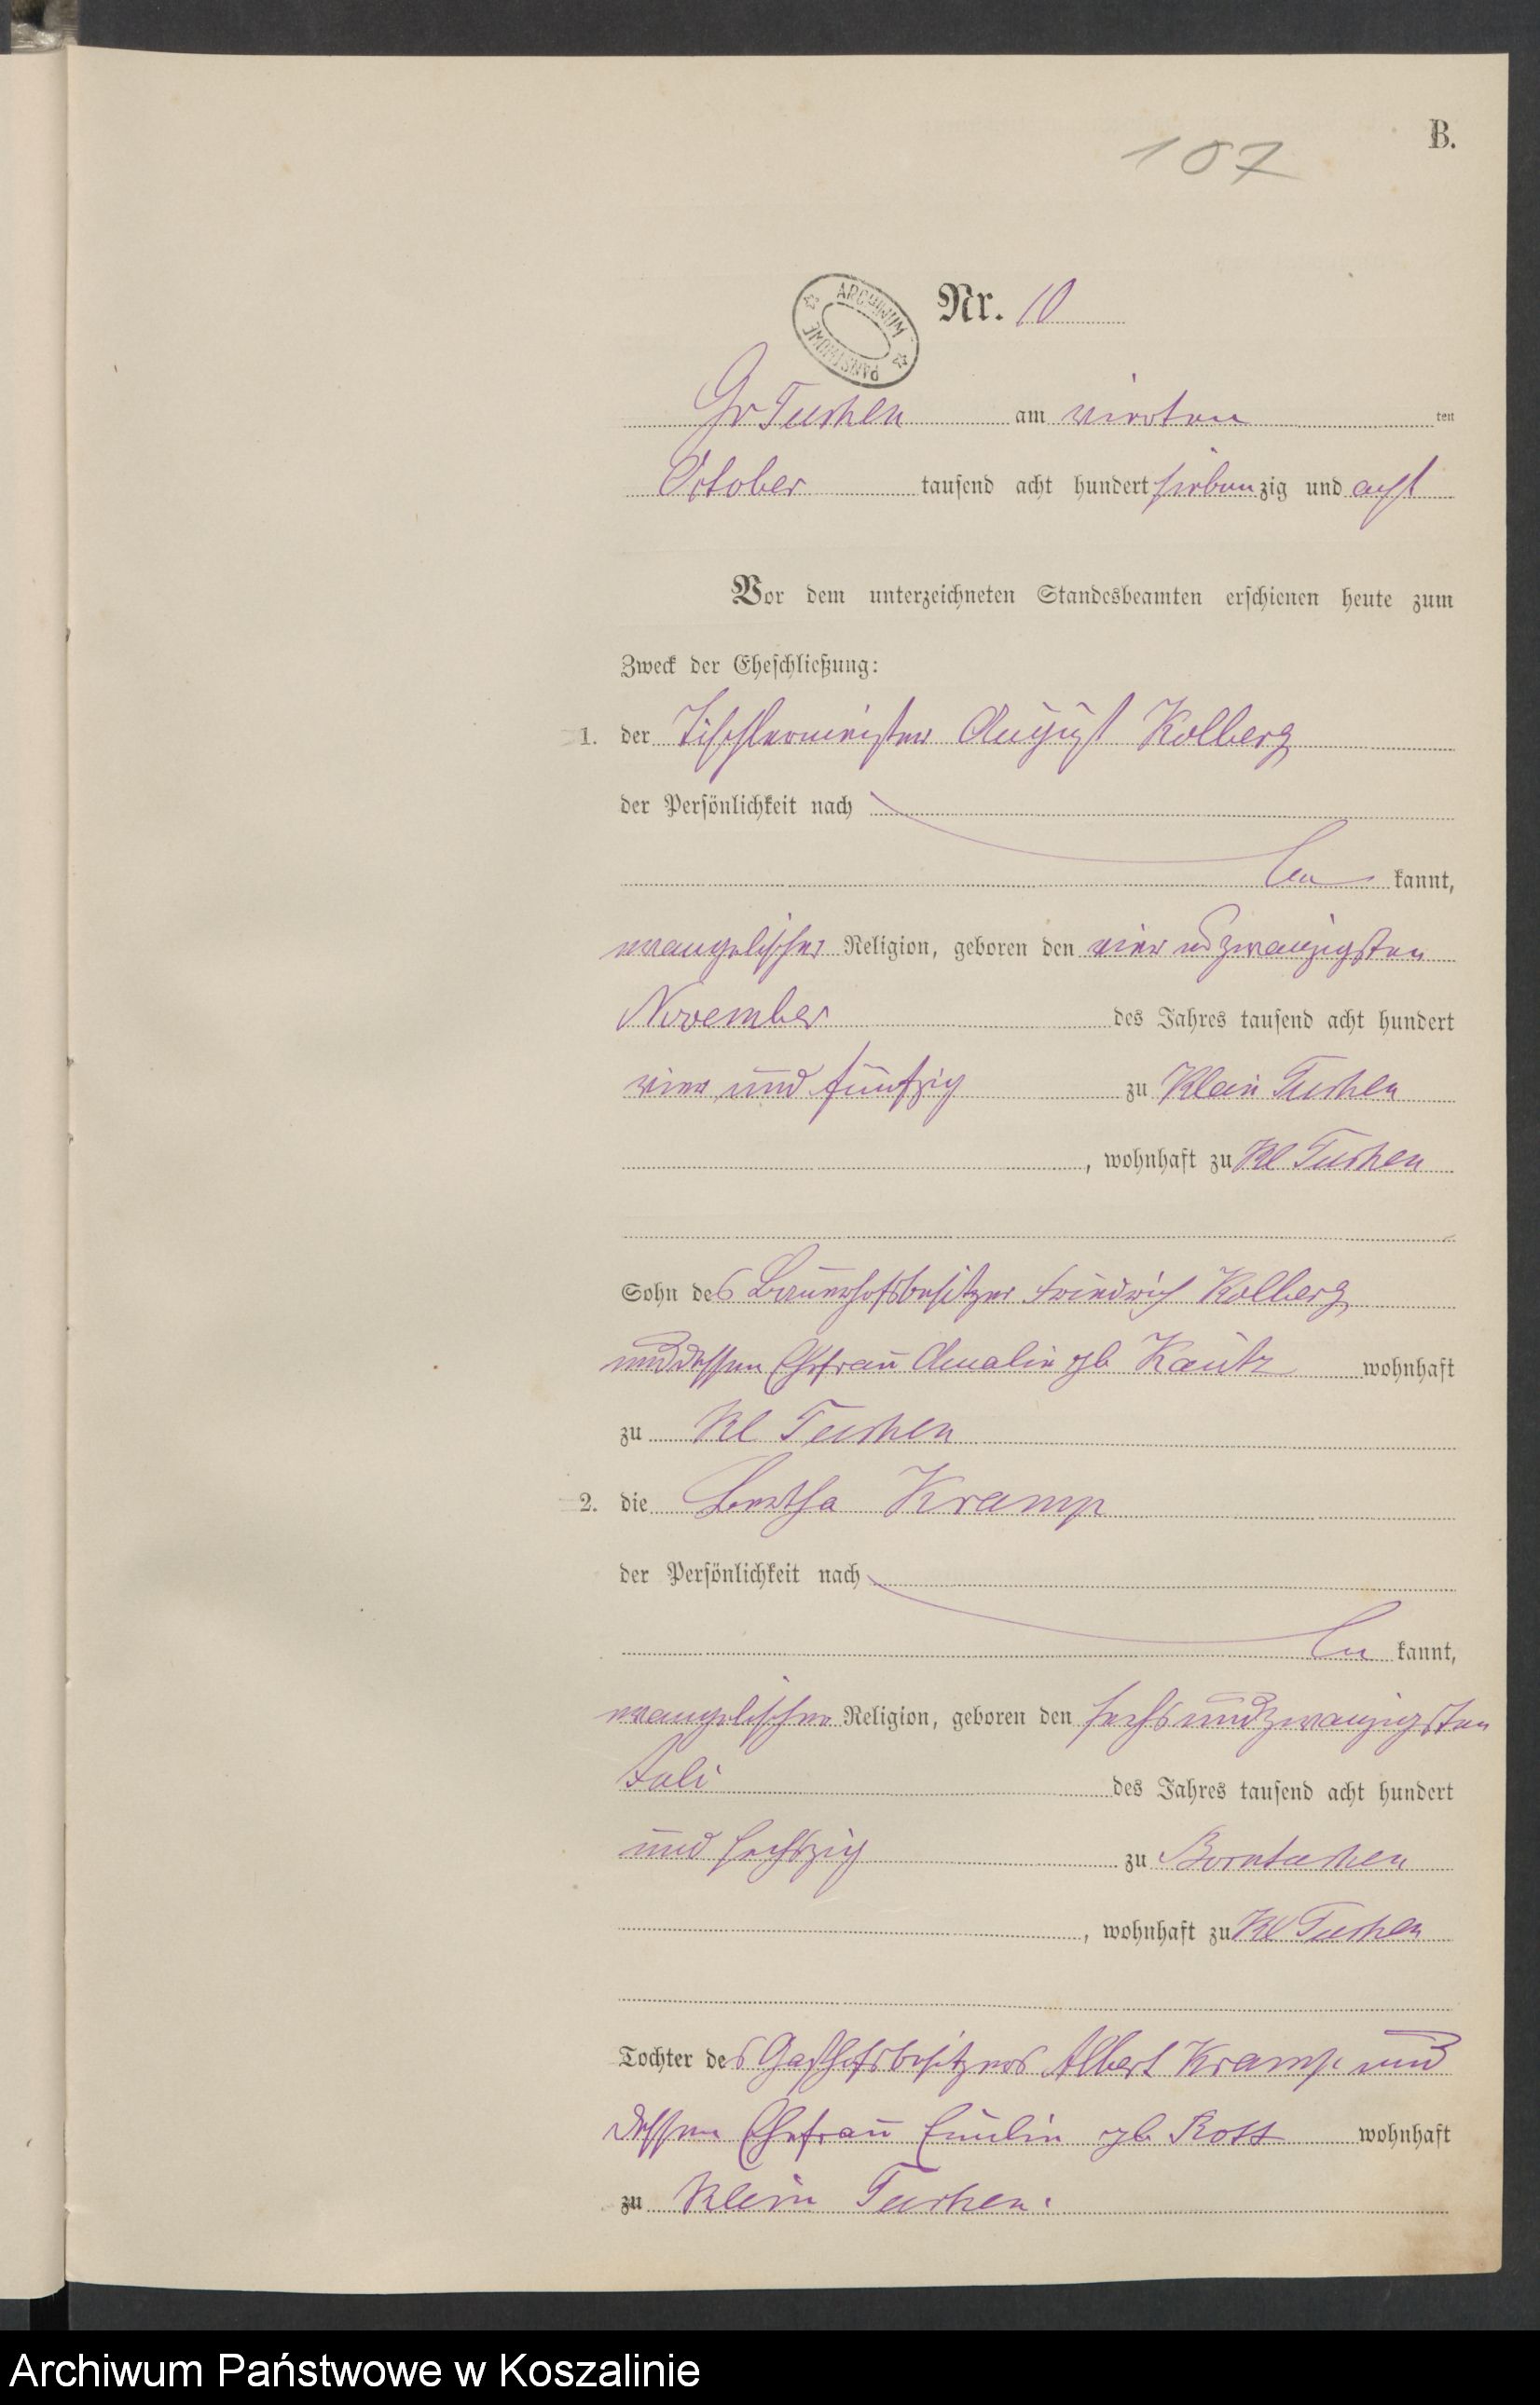 B.
107
ARCHIWUM PAŃSTWOWE
Nr. 10
Gr Tuchen am vierten ten
October tausend acht hundert siebenzig und acht
Vor dem unterzeichneten Standesbeamten erschienen heute zum
Zweck der Eheschließung:
1. der Tischlermeister August Kolberg
der Persönlichkeit nach
be kannt,
evangelischer Religion, geboren den vier und zwanzigsten
November des Jahres tausend acht hundert
vier und fünfzig zu Klein Tuchen
, wohnhaft zu Kl Tuchen
Sohn des Bauerhofsbesitzer Friedrich Kolberg
und dessen Ehefrau Amalie gb Kautz wohnhaft
zu Kl Tuchen
2. die Bertha Kramp
der Persönlichkeit nach
be kannt,
evangelischer Religion, geboren den sechs und zwanzigsten
Juli des Jahres tausend acht hundert
und sechszig zu Borntuchen
, wohnhaft zu Kl Tuchen
Tochter des Gasthofsbesitzers Albert Kramp und
dessen Ehefrau Emilie gb wohnhaft
zu Klein Tuchen.
Archiwum Państwowe w Koszalinie